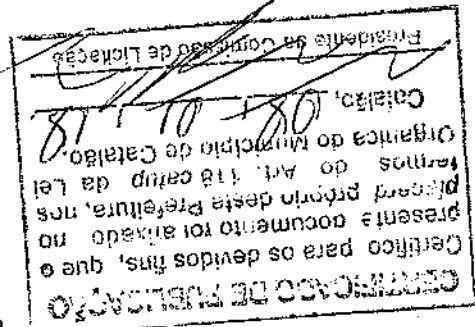 CERTIFICADO DE PUBLICAÇÃO
Certifico para os devidos fins, que o
presente documento foi afixado no
placard próprio desta Prefeitura, nos
termos do Art. 118 caput da Lei
Organica do Município de Catalão.
Catalão, 08 / 10 / 18
Presidente da Comissão de Licitação